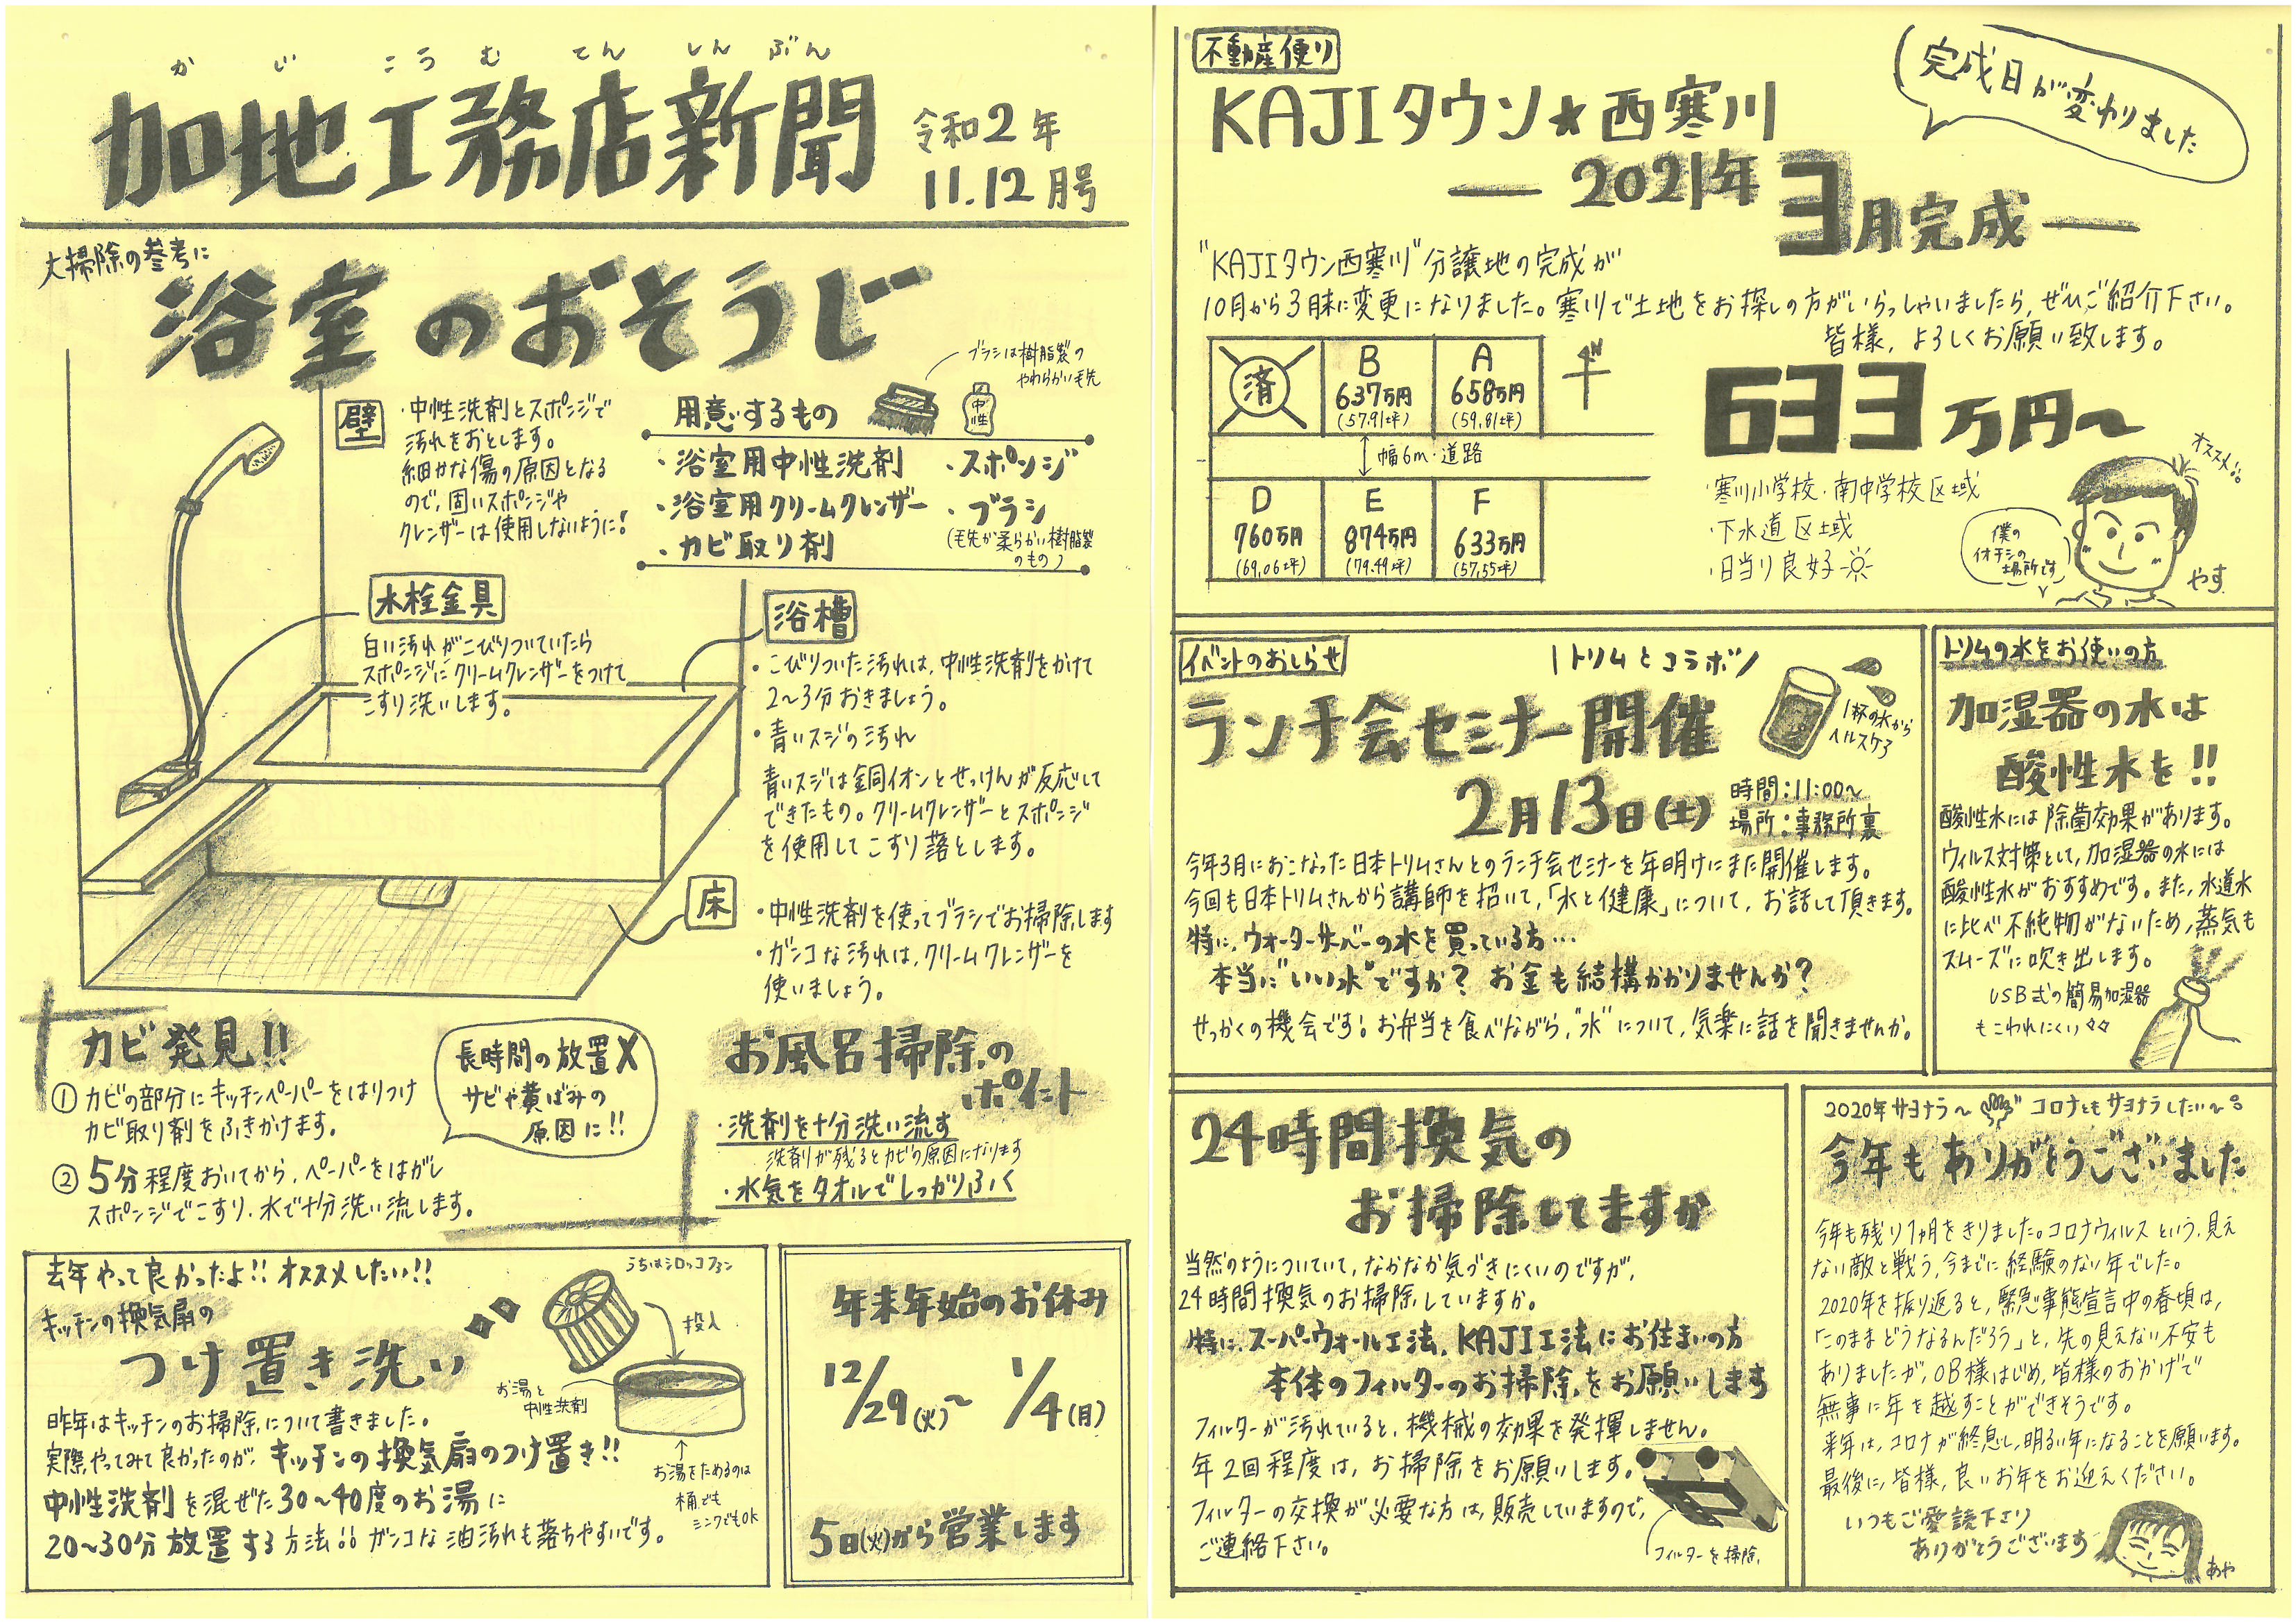 かじこうむてんしんぶん
加地工務店新聞
令和2年
11.12月号
大掃除の参考に
浴室のおそうじ
壁
・中性洗剤とスポンジで
汚れをおとします。
細かな傷の原因となる
ので、固いスポンジや
クレンザーは使用しないように!
用意するもの
ブラシは樹脂製の
やわらかい毛先
中性
・浴室用中性洗剤
・スポンジ
・浴室用クリームクレンザー
・ブラシ
(毛先が柔らかい樹脂製
のもの)
・カビ取り剤
水栓金具
白い汚れがこびりついていたら
スポンジにクリームクレンザーをつけて
こすり洗いします。
浴槽
・こびりついた汚れは、中性洗剤をかけて
2〜3分おきましょう。
・青いスジの汚れ
青いスジは銅イオンとせっけんが反応して
できたもの。クリームクレンザーとスポンジ
を使用してこすり落とします。
床
・中性洗剤を使ってブラシでお掃除します
・ガンコな汚れは、クリームクレンザーを
使いましょう。
カビ発見!!
①カビの部分にキッチンペーパーをはりつけ
カビ取り剤をふきかけます。
②5分程度おいてから、ペーパーをはがし
スポンジでこすり、水で十分洗い流します。
長時間の放置X
サビや黄ばみの
原因に!!
お風呂掃除の
ポイント
・洗剤を十分洗い流す
洗剤が残るとカビの原因になります
・水気をタオルでしっかりふく
去年やって良かったよ!!オススメしたい!!
キッチンの換気扇の
つけ置き洗い
うちはシロッコファン
投入
お湯と
中性洗剤
お湯をためるのは
桶でも
シンクでもOK
昨年はキッチンのお掃除について書きました。
実際やってみて良かったのが、キッチンの換気扇のつけ置き!!
中性洗剤を混ぜた30〜40度のお湯に
20〜30分放置する方法!!ガンコな油汚れも落ちやすいです。
年末年始のお休み
12/29(火)〜 1/4(月)
5日(火)から営業します
不動産便り
KAJIタウン★西寒川
完成日が変わりました
―2021年3月完成―
"KAJIタウン西寒川"分譲地の完成が
10月から3月末に変更になりました。寒川で土地をお探しの方がいらっしゃいましたら、ぜひご紹介下さい。
皆様、よろしくお願い致します。
済
B
637万円
(57.91坪)
A
658万円
(59.81坪)
N
幅6m・道路
D
760万円
(69.06坪)
E
874万円
(79.49坪)
F
633万円
(57.55坪)
633万円〜
・寒川小学校・南中学校区域
・下水道区域
・日当り良好
オススメ!!
僕の
イチオシの
場所です
やす
イベントのおしらせ
\トリムとコラボ/
ランチ会セミナー開催
1杯の水から
ヘルスケア
2月13日(土)
時間:11:00〜
場所:事務所裏
今年3月におこなった日本トリムさんとのランチ会セミナーを年明けにまた開催します。
今回も日本トリムさんから講師を招いて、「水と健康」について、お話して頂きます。
特に、ウォーターサーバーの水を買っている方…
本当に"いい水"ですか?お金も結構かかりませんか?
せっかくの機会です!お弁当を食べながら、"水"について、気楽に話を聞きませんか。
トリムの水をお使いの方
加湿器の水は
酸性水を!!
酸性水には除菌効果があります。
ウィルス対策として、加湿器の水には
酸性水がおすすめです。また、水道水
に比べ不純物がないため、蒸気も
スムーズに吹き出します。
USB式の簡易加湿器
もこわれにくい◇◇
24時間換気の
お掃除してますか
当然のようについていて、なかなか気づきにくいのですが、
24時間換気のお掃除していますか。
特に、スーパーウォール工法、KAJI工法にお住まいの方
本体のフィルターのお掃除をお願いします
フィルターが汚れていると、機械の効果を発揮しません。
年2回程度は、お掃除をお願いします。
フィルターの交換が必要な方は、販売していますので、
ご連絡下さい。
フィルターを掃除
2020年サヨナラ〜 コロナともサヨナラしたい〜
今年もありがとうございました
今年も残り1ヵ月をきりました。コロナウィルスという、見え
ない敵と戦う、今までに経験のない年でした。
2020年を振り返ると、緊急事態宣言中の春頃は、
「このままどうなるんだろう」と、先の見えない不安も
ありましたが、OB様はじめ、皆様のおかげで
無事に年を越すことができそうです。
来年は、コロナが終息し、明るい年になることを願います。
最後に、皆様、良いお年をお迎えください。
いつもご愛読下さり
ありがとうございます
あや